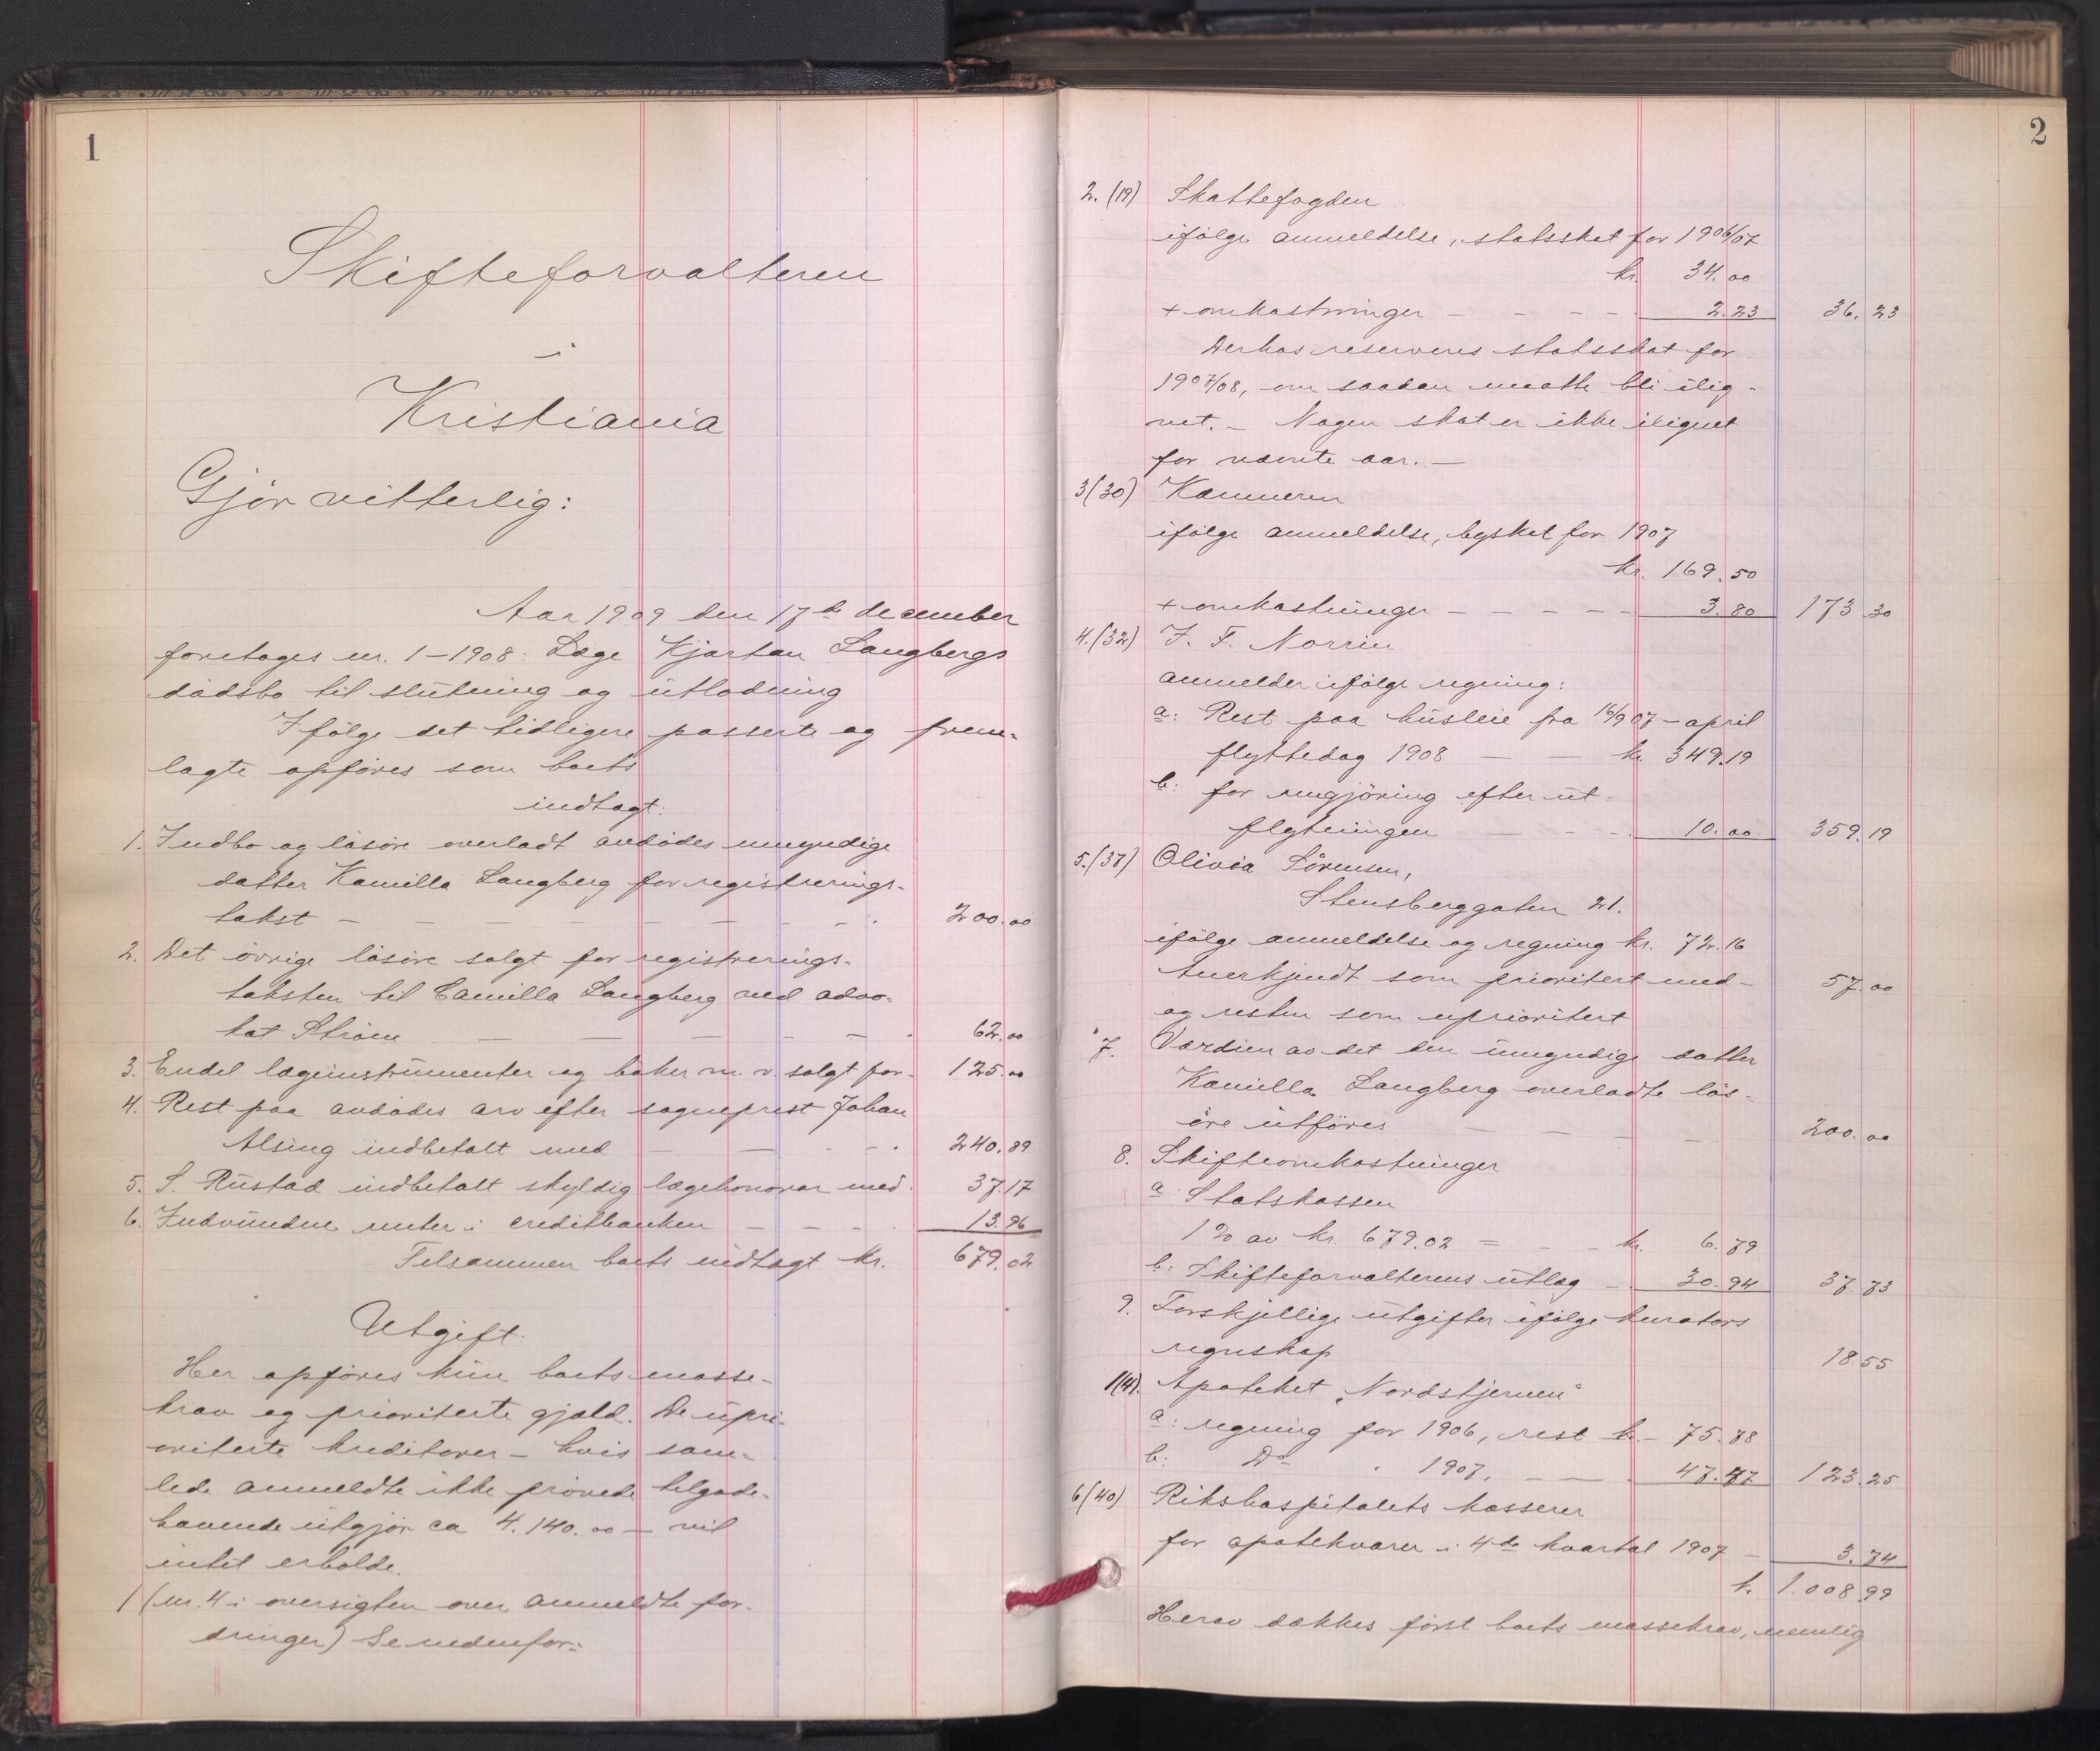 1
Skifteforvalteren
i
Kristiania
Gjør vitterlig:
Aar 1909 den 17de december
foretoges nr. 1-1908: Læge Kjartan Langbergs
dødsbo til slutning og utlodning
Ifølge det tidligere passerte og frem-
lagte opføres som boets
indtægt:
1. Indbo og løsøre overladt avdødes umyndige
datter Kamilla Langberg for registrerings-
takst - - - - - - - . 200.00
2. Det øvrige løsøre solgt for registrerings-
taksten til Camilla Langberg ved advo-
kat Strøm - - - - - . 62.00
3. Endel lægeinstrumenter og bøker m. v. solgt for. 125.00
4. Rest paa avdødes arv efter sogneprest Johan
Alsing indbetalt med - - - - . 240.89
5. S. Rustad indbetalt skyldig lægehonorar med. 37.17
6. Indvundne renter i creditbanken - - - . 13.96
Tilsammen boets indtægt kr. 679.02
Utgift:
Her opføres kun boets masse-
krav og prioriterte gjæld. De upri-
oriterte kreditorer - hvis sam-
lede anmeldte ikke prøvede tilgode-
havende utgjør ca 4.140.00 - vil
intet erholde.
1 (nr. 4 i oversigten over anmeldte for-
dringer) Se nedenfor:
2
2. (19) Skattefogden
ifølge anmeldelse, statsskat for 1906/07
kr. 34.00
+ omkostninger - - - - 2.23 36.23
Derhos reserveres statsskat for
1907/08, om saadan maatte bli ilig-
net. - Nogen skat er ikke ilignet
for nævnte aar. -
3 (30) Kæmneren
ifølge anmeldelse, byskat for 1907
kr. 169.50
+ omkostninger - - - - - 3.80 173.30
4. (32) J. F. Norrin
anmelder ifølge regning:
a: Rest paa husleie fra 16/9 07 - april
flyttedag 1908 - - kr. 349.19
b: for rengjøring efter ut-
flytningen - - - . 10.00 359.19
5. (37) Olivia Sørensen,
Stensberggaten 21.
ifølge anmeldelse og regning kr. 72.16
Anerkjendt som prioritert med - 57.00
og resten som uprioritert
7. Værdien av det den umyndige datter
Kamilla Langberg overladte løs-
øre utføres - - - - 200.00
8. Skifteomkostninger
a: Statskassen
1% av kr. 679.02 = - - kr. 6.79
b: Skifteforvalterens utlæg - . 30.94 37.73
9. Forskjellige utgifter ifølge kurators
regnskap 18.55
1(4). Apoteket "Nordstjernen"
a: regning for 1906, rest kr. - 75.78
b: Do . 1907, - - . 47.47 123.25
6 (40) Rikshospitalets kasserer
for apotekvarer i 4de kvartal 1907 - 3.74
kr. 1.008.99
Herav dækkes først boets massekrav, nemlig